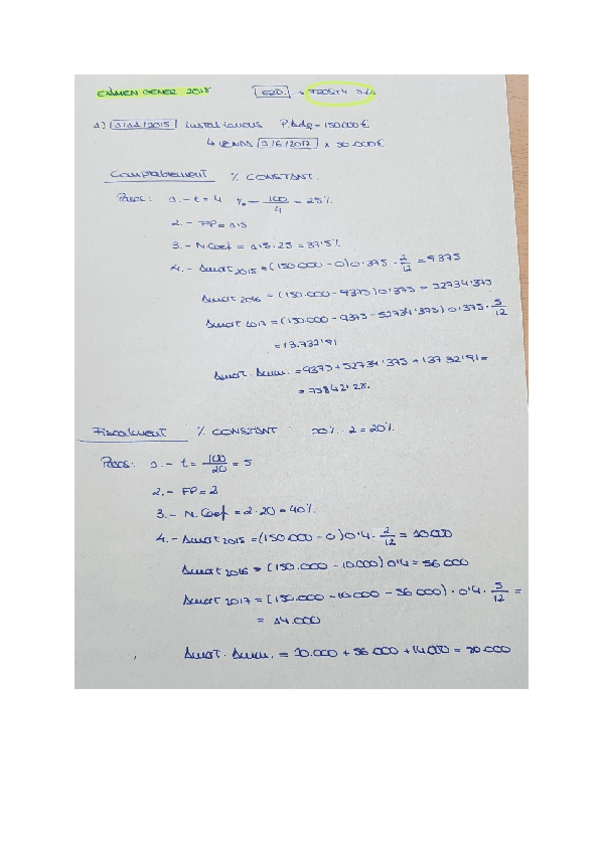 EXAMEN GENER 2018 ERD. →
1) 1/11/2015 instal·lacions P. Adq = 150.000 €
↳ VENDA 1/6/2017 x 90.000 €
Comptablement % CONSTANT.
Pasos: 1.- t = 4 % = 100/4 = 25 %
2.- FP = 1'5
3.- N.Coef = 1'5 · 25 = 37'5 %
4.- Amort 2015 = (150.000 - 0) 0'375 · 2/12 = 9375
Amort 2016 = (150.000 - 9375) 0'375 = 52734'375
Amort 2017 = (150.000 - 9375 - 52734'375) 0'375 · 5/12
= 13.732'91
Amort. Acum. = 9375 + 52734'375 + 13732'91 =
= 75842'28.
Fiscalment % CONSTANT 10 % · 2 = 20 %.
Pasos: 1.- t = 100/20 = 5
2.- FP = 2
3.- N. Coef = 2 · 20 = 40 %.
4.- Amort 2015 = (150.000 - 0) 0'4 · 2/12 = 10.000
Amort 2016 = (150.000 - 10.000) 0'4 = 56.000
Amort 2017 = (150.000 - 10.000 - 56.000) · 0'4 · 5/12 =
= 14.000
Amort. Acum. = 10.000 + 56.000 + 14.000 = 80.000